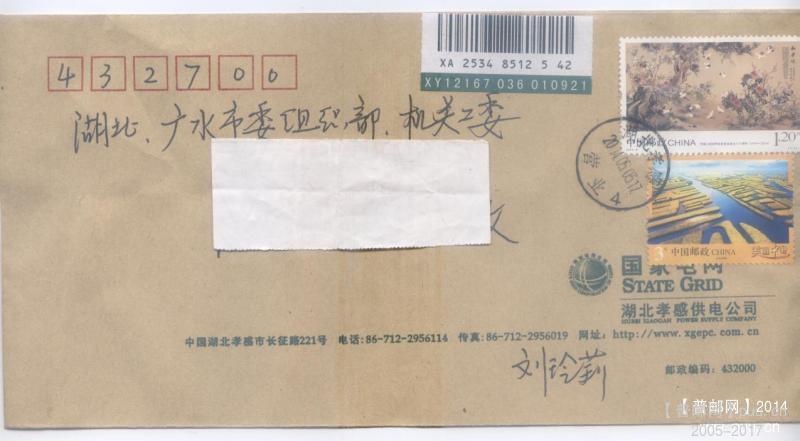 XA 2534 8512 5 42
XY12167 036 010921
432700
湖北、广水市委组织部、机关工委
中国邮政 CHINA
1.20元
中国邮政 CHINA
3元
美丽中国
国家电网
STATE GRID
湖北孝感供电公司
HUBEI XIAOGAN POWER SUPPLY COMPANY
中国湖北孝感市长征路221号 电话:86-712-2956114 传真:86-712-2956019 网址:http://www.xgepc.com.cn
刘玲莉
邮政编码:432000
【普邮网】2014
2005-2017